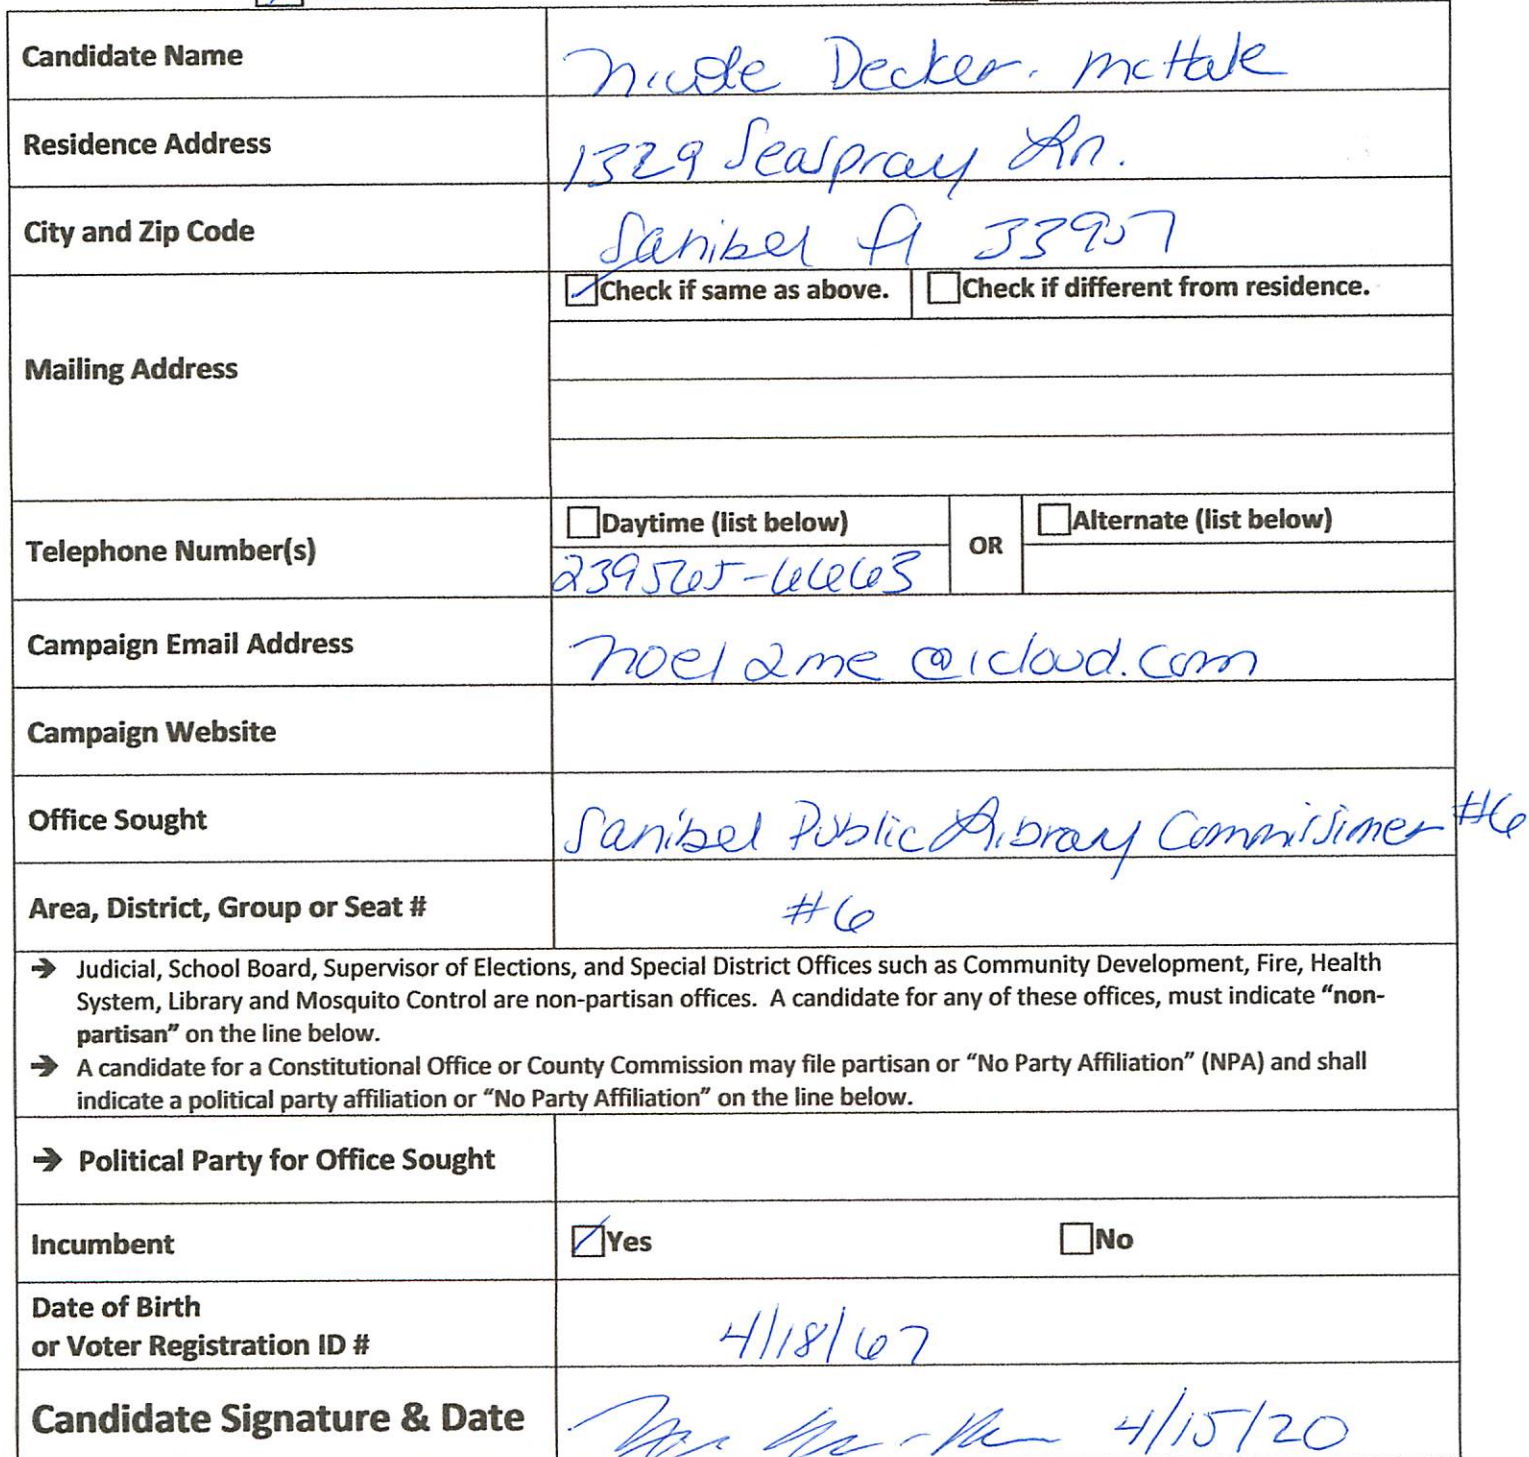 Candidate Name Nicole Decker-McHale
Residence Address 1329 Seaspray Ln.
City and Zip Code Sanibel Fl 33957
Check if same as above. Check if different from residence.
Mailing Address
Daytime (list below) OR Alternate (list below)
Telephone Number(s) 239 565-6663
Campaign Email Address noel2me@icloud.com
Campaign Website
Office Sought Sanibel Public Library Commissioner #6
Area, District, Group or Seat # #6
→ Judicial, School Board, Supervisor of Elections, and Special District Offices such as Community Development, Fire, Health
System, Library and Mosquito Control are non-partisan offices. A candidate for any of these offices, must indicate “non-
partisan” on the line below.
→ A candidate for a Constitutional Office or County Commission may file partisan or “No Party Affiliation” (NPA) and shall
indicate a political party affiliation or “No Party Affiliation” on the line below.
→ Political Party for Office Sought
Incumbent Yes No
Date of Birth
or Voter Registration ID # 4/18/67
Candidate Signature & Date 4/15/20